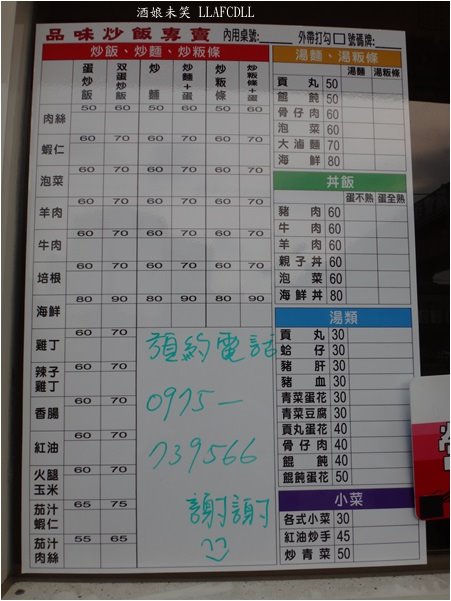 酒娘未笑 LLAFCDLL
品味炒飯專賣 內用桌號: 外帶打勾□ 號碼牌:
炒飯、炒麵、炒粄條
蛋炒飯 双蛋炒飯 炒麵 炒麵+蛋 炒粄條 炒粄條+蛋
肉絲 50 60 50 60 50 60
蝦仁 60 70 60 70 60 70
泡菜 60 70 60 70 60 70
羊肉 60 70 60 70 60 70
牛肉 60 70 60 70 60 70
培根 60 70 60 70 60 70
海鮮 80 90 80 90 80 90
雞丁 60 70
辣子雞丁 60 70
香腸 60 70
紅油 60 70
火腿玉米 60 70
茄汁蝦仁 65 75
茄汁肉絲 55 65
預約電話
0975—
739566
謝謝
湯麵、湯粄條
湯麵 湯粄條
貢丸 50
餛飩 50
骨仔肉 60
泡菜 60
大滷麵 70
海鮮 80
丼飯
蛋不熟 蛋全熟
豬肉 60
牛肉 60
羊肉 60
親子丼 60
泡菜 60
海鮮丼 80
湯類
貢丸 30
蛤仔 30
豬肝 30
豬血 30
青菜蛋花 30
青菜豆腐 30
貢丸蛋花 40
骨仔肉 40
餛飩 40
餛飩蛋花 50
小菜
各式小菜 30
紅油炒手 45
炒青菜 50